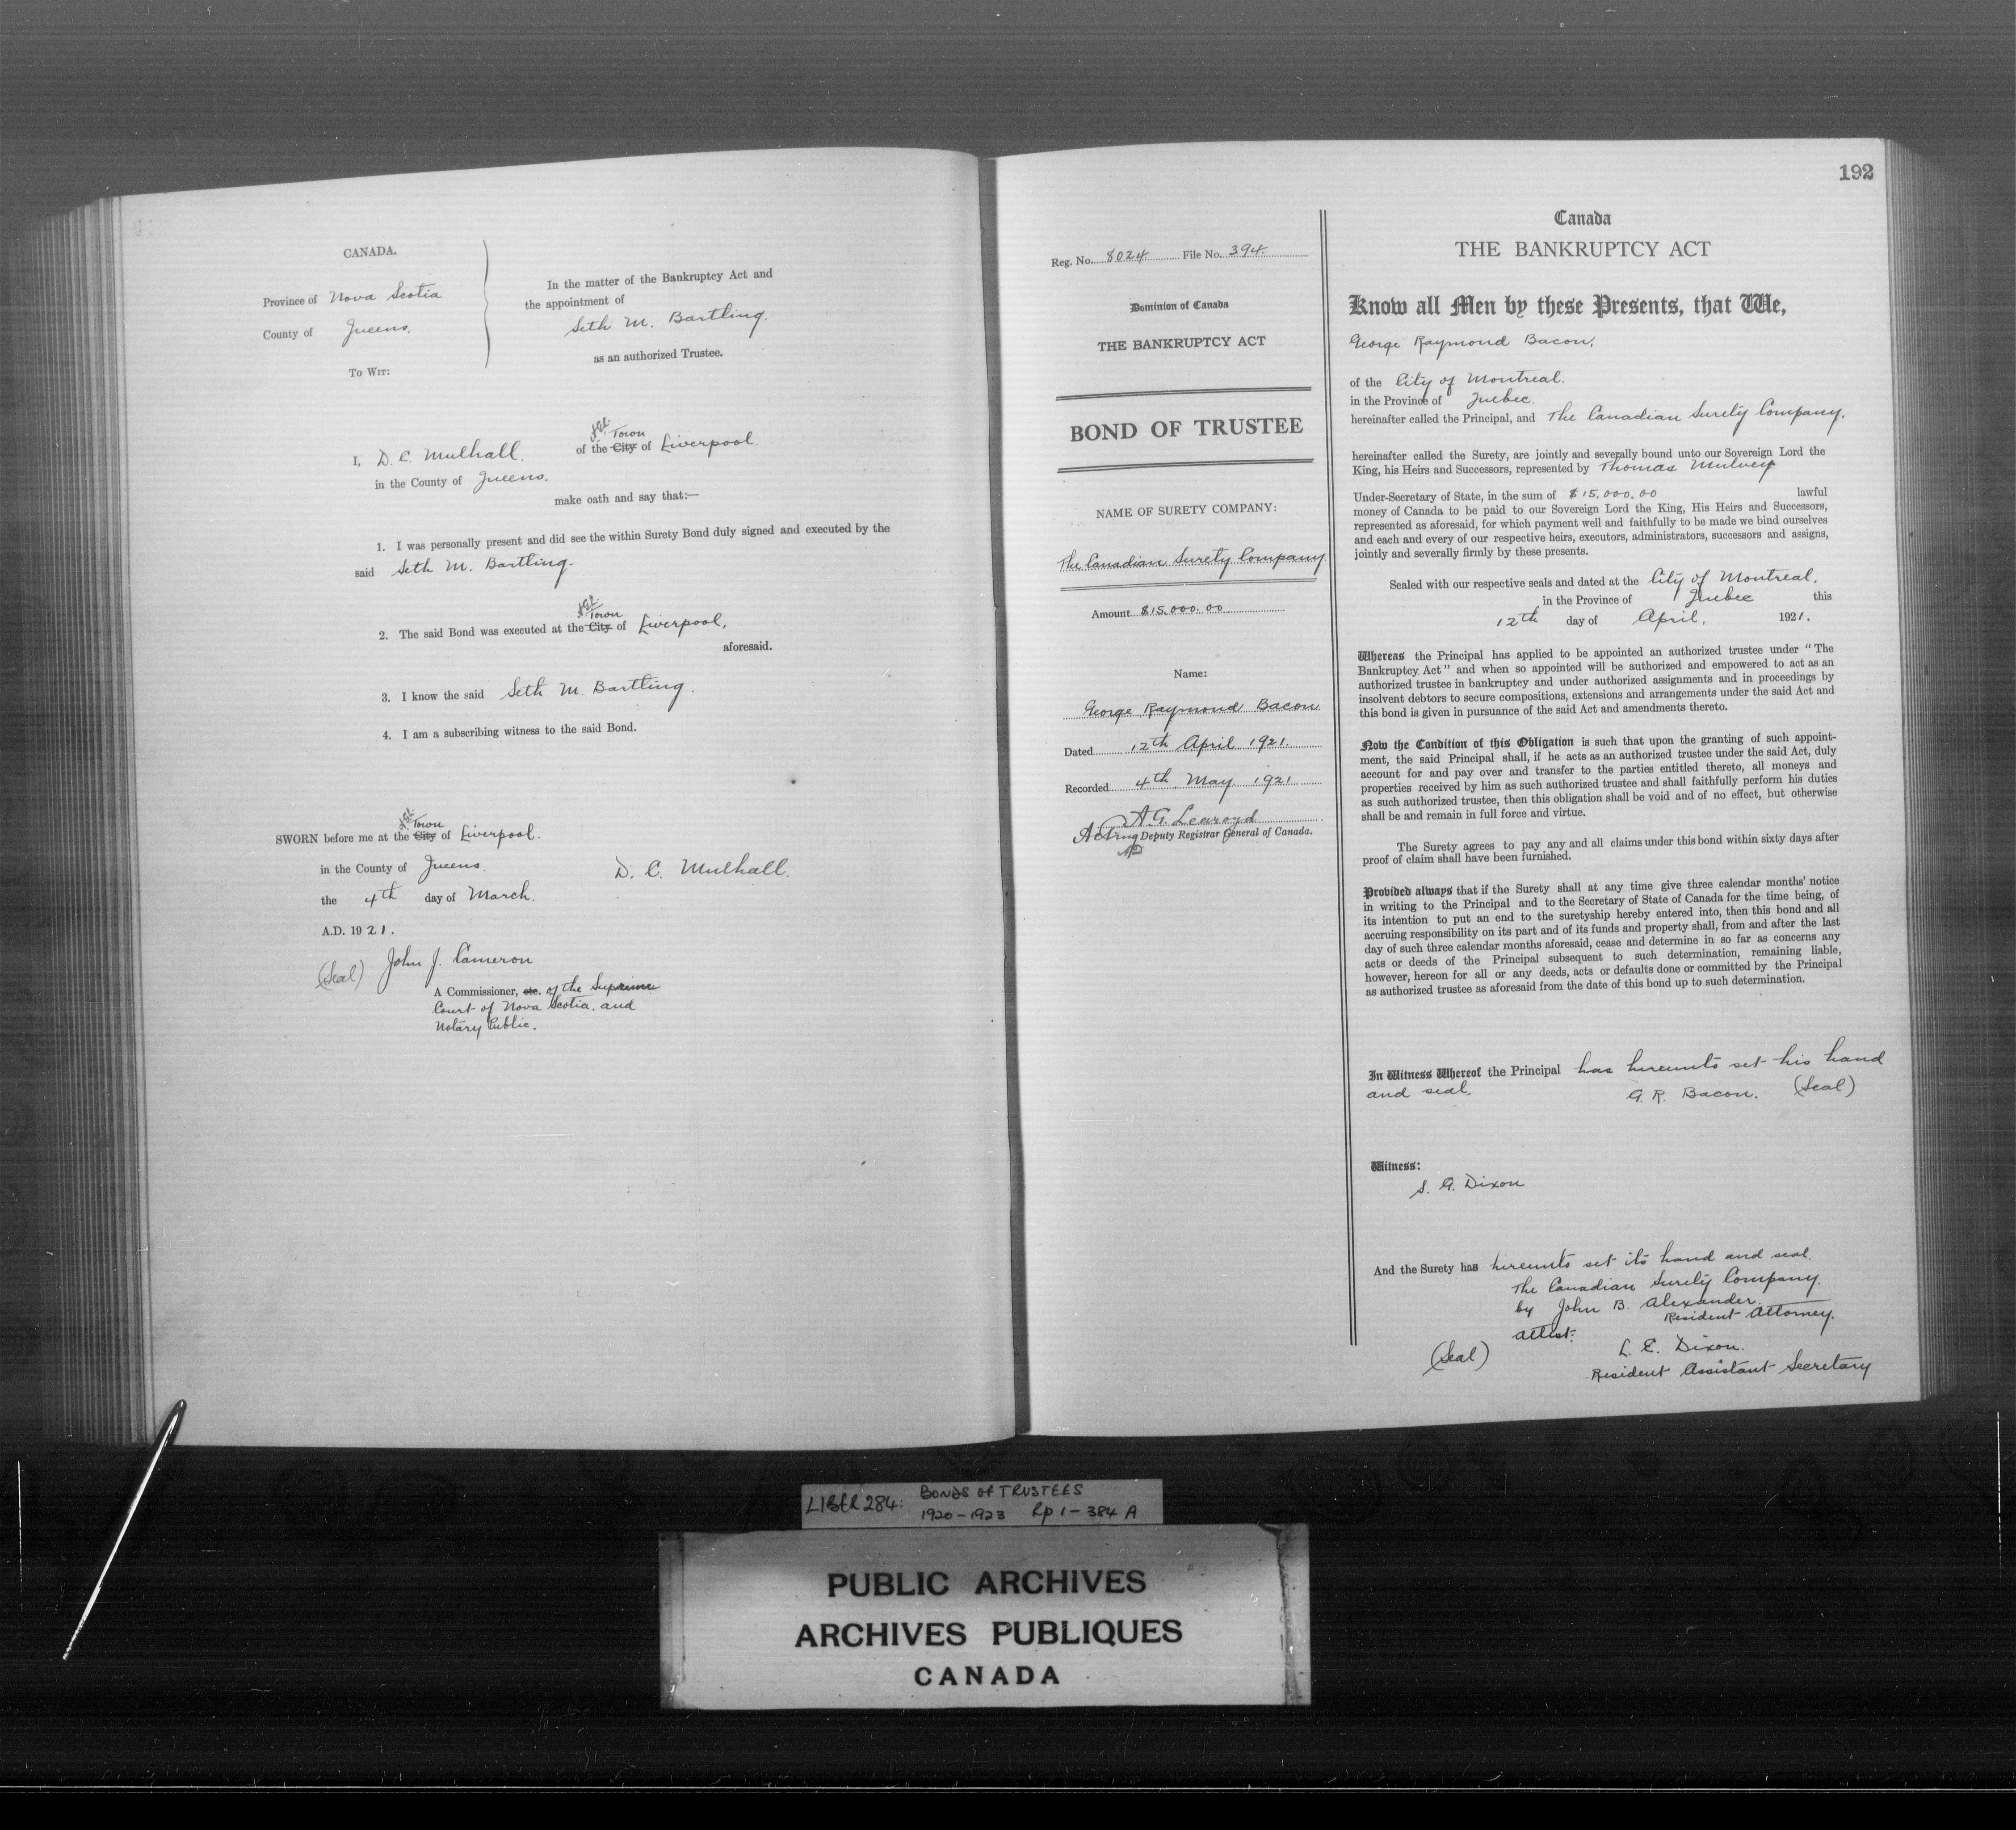 CANADA.
Province of Nova Scotia
County of Queens.
To Wit:
In the matter of the Bankruptcy Act and
the appointment of
Seth M. Bartling.
as an authorized Trustee.
Town
I, D. C. Mulhall. of the City of Liverpool.
in the County of Queens.
make oath and say that:—
1. I was personally present and did see the within Surety Bond duly signed and executed by the
said Seth M. Bartling.
Town
2. The said Bond was executed at the City of Liverpool,
aforesaid.
3. I know the said Seth M. Bartling.
4. I am a subscribing witness to the said Bond.
Town
SWORN before me at the City of Liverpool.
in the County of Queens.
the 4th day of March.
A.D. 1921.
D. C. Mulhall.
(Seal) John J. Cameron
A Commissioner, etc. of the Supreme
Court of Nova Scotia. and
Notary Public.
Reg. No. 8024 File No. 394.
Dominion of Canada
THE BANKRUPTCY ACT
BOND OF TRUSTEE
NAME OF SURETY COMPANY:
The Canadian Surety Company.
Amount $15,000.00
Name:
George Raymond Bacon
Dated 12th April 1921
Recorded 4th May 1921
A. G. Learoyd
Acting Deputy Registrar General of Canada.
192
Canada
THE BANKRUPTCY ACT
Know all Men by these Presents, that We,
George Raymond Bacon,
of the City of Montreal.
in the Province of Quebec.
hereinafter called the Principal, and The Canadian Surety Company.
hereinafter called the Surety, are jointly and severally bound unto our Sovereign Lord the
King, his Heirs and Successors, represented by Thomas Mulvey
Under-Secretary of State, in the sum of $15,000.00 lawful
money of Canada to be paid to our Sovereign Lord the King, His Heirs and Successors,
represented as aforesaid, for which payment well and faithfully to be made we bind ourselves
and each and every of our respective heirs, executors, administrators, successors and assigns,
jointly and severally firmly by these presents.
Sealed with our respective seals and dated at the City of Montreal.
in the Province of Quebec this
12th day of April. 1921.
Whereas the Principal has applied to be appointed an authorized trustee under "The
Bankruptcy Act" and when so appointed will be authorized and empowered to act as an
authorized trustee in bankruptcy and under authorized assignments and in proceedings by
insolvent debtors to secure compositions, extensions and arrangements under the said Act and
this bond is given in pursuance of the said Act and amendments thereto.
Now the Condition of this Obligation is such that upon the granting of such appoint-
ment, the said Principal shall, if he acts as an authorized trustee under the said Act, duly
account for and pay over and transfer to the parties entitled thereto, all moneys and
properties received by him as such authorized trustee and shall faithfully perform his duties
as such authorized trustee, then this obligation shall be void and of no effect, but otherwise
shall be and remain in full force and virtue.
The Surety agrees to pay any and all claims under this bond within sixty days after
proof of claim shall have been furnished.
Provided always that if the Surety shall at any time give three calendar months' notice
in writing to the Principal and to the Secretary of State of Canada for the time being, of
its intention to put an end to the suretyship hereby entered into, then this bond and all
accruing responsibility on its part and of its funds and property shall, from and after the last
day of such three calendar months aforesaid, cease and determine in so far as concerns any
acts or deeds of the Principal subsequent to such determination, remaining liable,
however, hereon for all or any deeds, acts or defaults done or committed by the Principal
as authorized trustee as aforesaid from the date of this bond up to such determination.
In Witness Whereof the Principal has hereunto set his hand
and seal.
G. R. Bacon. (Seal)
Witness:
S. G. Dixon
And the Surety has hereunto set its hand and seal.
The Canadian Surety Company.
by John B. Alexander.
Resident Attorney.
attest:
(Seal) L. E. Dixon.
Resident Assistant Secretary
LIBER 284: BONDS OF TRUSTEES
1920-1923 Rp 1-384 A
PUBLIC ARCHIVES
ARCHIVES PUBLIQUES
CANADA